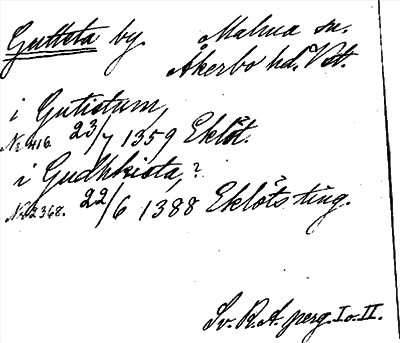 Gutteta by. Malma sn.
Åkerbo hd. Vstl.
i Gutietum,
N: 416. 23/7 1359 Eklöt.
i Gudhhista,?
N: 2368. 22/6 1388 Eklöts ting.
Sv. R. A. perg. I o. II.